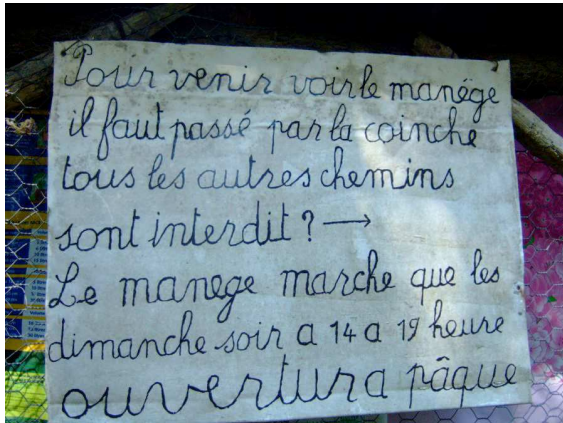 Pour venir voir le manége
il faut passé par la coinche
tous les autres chemins
sont interdit ? →
Le manege marche que les
dimanche soir a 14 a 19 heure
ouvertura pâque